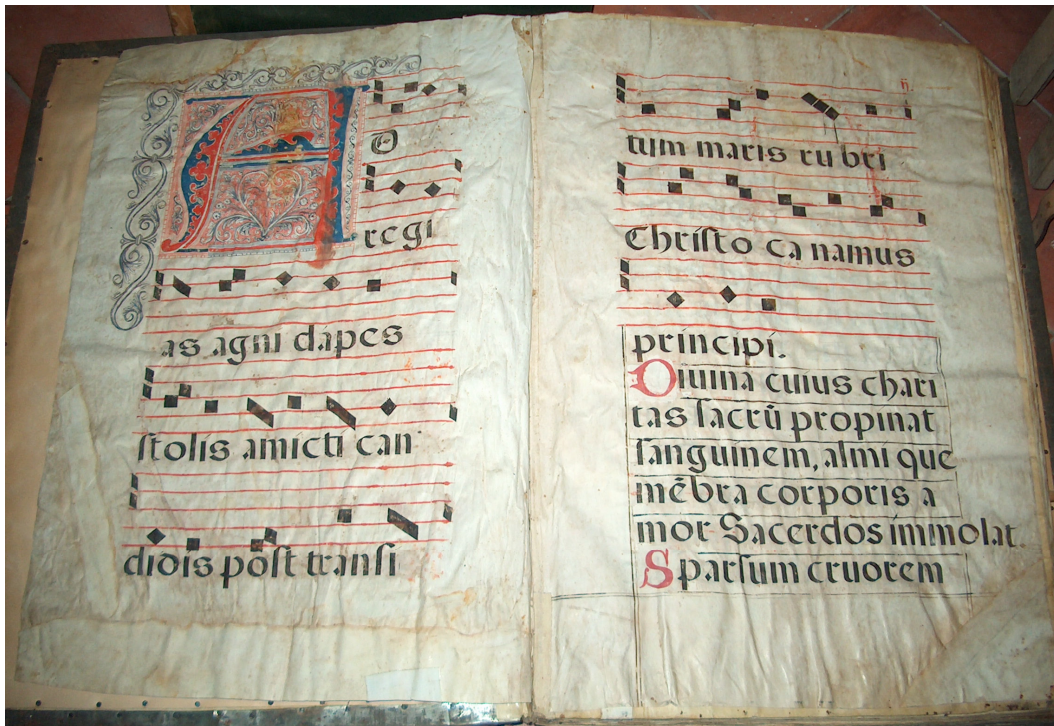 A D
regi
as agni dapes
ſtolis amicti can
didis poſt tranſi
tum maris ru bri
Chriſto ca namus
principi.
Diuina cuius chari
tas ſacrũ propinat
ſanguinem, almi que
mẽbra corporis a
mor Sacerdos immolat.
Sparſum cruorem